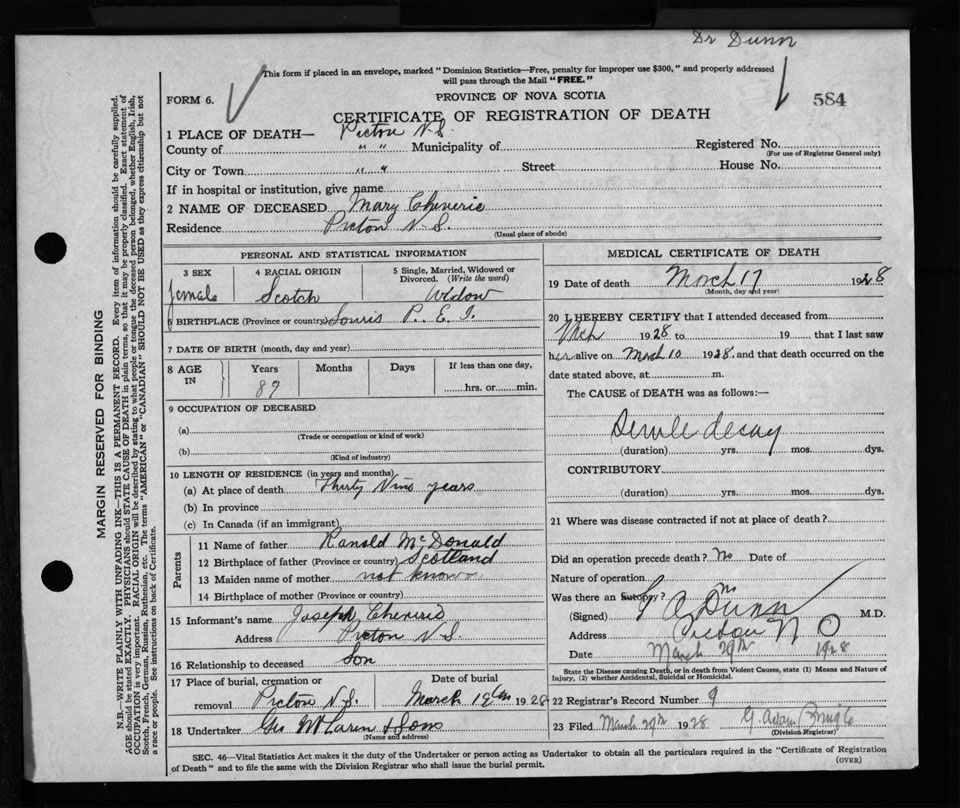 Dr Dunn
This form if placed in an envelope, marked "Dominion Statistics—Free, penalty for improper use $300," and properly addressed
will pass through the Mail "FREE."
FORM 6.
PROVINCE OF NOVA SCOTIA
584
CERTIFICATE OF REGISTRATION OF DEATH
1 PLACE OF DEATH— Pictou N.S.
County of " " Municipality of Registered No.
(For use of Registrar General only)
City or Town " " Street House No.
If in hospital or institution, give name
2 NAME OF DECEASED Mary Cheverie
Residence Pictou N.S.
(Usual place of abode)
PERSONAL AND STATISTICAL INFORMATION
3 SEX 4 RACIAL ORIGIN 5 Single, Married, Widowed or
Divorced. (Write the word)
female Scotch Widow
6 BIRTHPLACE (Province or country) Souris P.E.I.
7 DATE OF BIRTH (month, day and year)
8 AGE Years Months Days If less than one day,
IN 89 hrs. or min.
9 OCCUPATION OF DECEASED
(a)
(Trade or occupation or kind of work)
(b)
(Kind of industry)
10 LENGTH OF RESIDENCE (in years and months)
(a) At place of death Thirty Nine years
(b) In province
(c) In Canada (if an immigrant)
Parents
11 Name of father Ranold McDonald
12 Birthplace of father (Province or country) Scotland
13 Maiden name of mother not known
14 Birthplace of mother (Province or country)
15 Informant's name Joseph Cheverie
Address Pictou N.S.
16 Relationship to deceased Son
17 Place of burial, cremation or Date of burial
removal Pictou N.S. March 19th 1928
18 Undertaker Geo McLaren & Sons
(Name and address)
MEDICAL CERTIFICATE OF DEATH
19 Date of death March 17 1928
(Month, day and year)
20 I HEREBY CERTIFY that I attended deceased from
Mch 1928 to 19 that I last saw
her alive on March 10 1928. and that death occurred on the
date stated above, at m.
The CAUSE of DEATH was as follows:—
Senile decay
(duration) yrs. mos. dys.
CONTRIBUTORY
(duration) yrs. mos. dys.
21 Where was disease contracted if not at place of death?
Did an operation precede death? No Date of
Nature of operation
Was there an autopsy? No
(Signed) Dunn M.D.
Address Pictou N
Date March 29th 1928
State the Disease causing Death, or in death from Violent Causes, state (1) Means and Nature of
Injury, (2) whether Accidental, Suicidal or Homicidal.
22 Registrar's Record Number 9
23 Filed March 29th 1928 G. Adam
(Division Registrar)
SEC. 46—Vital Statistics Act makes it the duty of the Undertaker or person acting as Undertaker to obtain all the particulars required in the "Certificate of Registration
of Death" and to file the same with the Division Registrar who shall issue the burial permit.
(OVER)
MARGIN RESERVED FOR BINDING
N.B.—WRITE PLAINLY WITH UNFADING INK—THIS IS A PERMANENT RECORD. Every item of information should be carefully supplied.
AGE should be stated EXACTLY. PHYSICIANS should STATE CAUSE OF DEATH in plain terms, so that it may be properly classified. Exact statement of
OCCUPATION is very important. RACIAL ORIGIN will be described by stating to what people or tongue the deceased person belonged, whether English, Irish,
Scotch, French, German, Russian, Ruthenian, etc. The terms "AMERICAN" or "CANADIAN" SHOULD NOT BE USED as they express citizenship but not
a race or people. See instructions on back of Certificate.